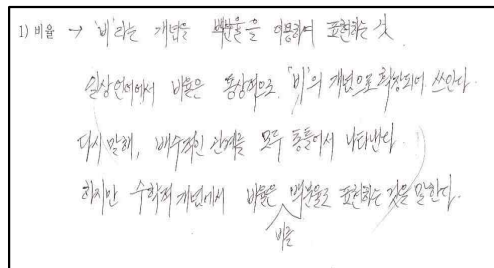 1) 비율 → '비'라는 개념을 백분율을 이용하여 표현하는 것
일상언어에서 비율은 통상적으로 '비'의 개념으로 확장되어 쓰인다.
다시 말해, 배수적인 관계를 모두 통틀어서 나타낸다.
하지만 수학적 개념에서 비율은 백분율로 표현하는 것을 말한다.
비를